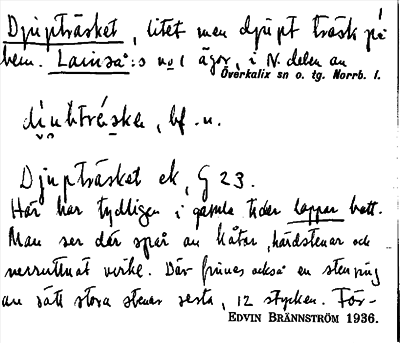 Djupträsket, litet men djupt träsk på
hem. Lainså:s no 1 ägor, i N. delen av
Överkalix sn o. tg. Norrb. l.
bf. n.
Djupträsket ek, G 23.
Här har tydligen i gamla tider lappar bott.
Man ser där spår av kåtor, härdstenar och
verruttnat virke. Där finnes också en stenring
av sått stora stenar resta, 12 stycken. För-
EDVIN BRÄNNSTRÖM 1936.